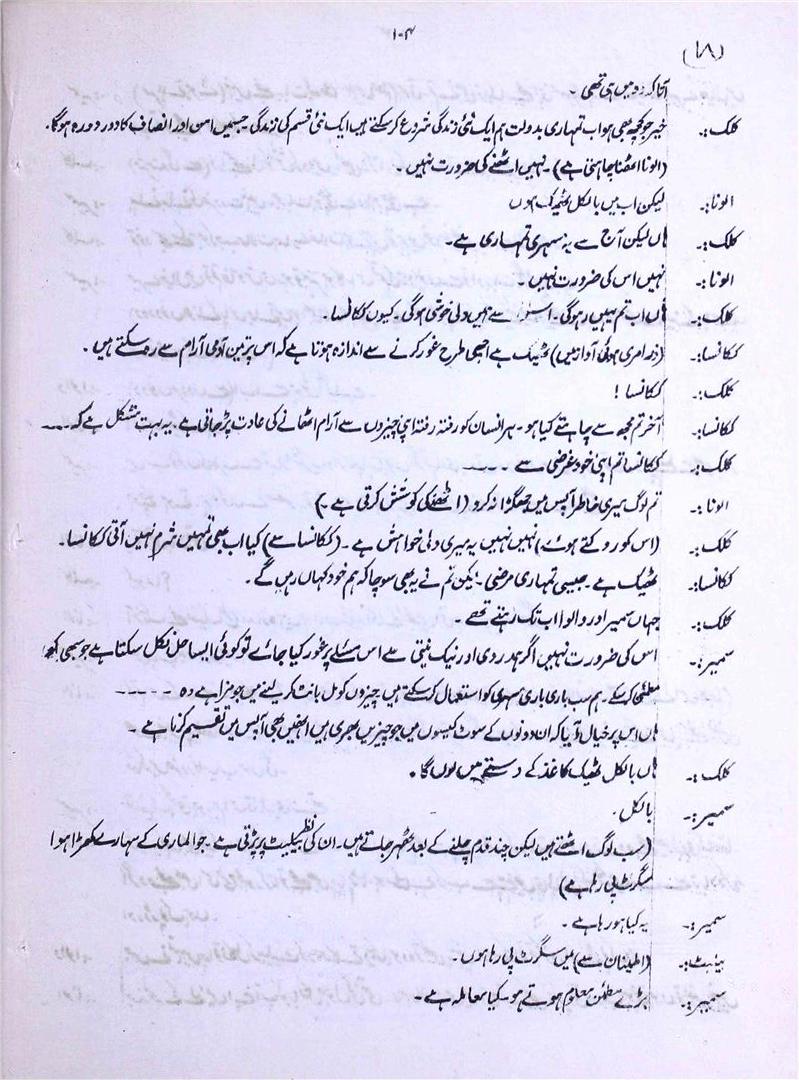 ۱۰۴
(۱۸)
آنا کہ زد میں ہی تھی ۔
کلک:۔ خیر جو کچھ بھی ہو اب تمہاری بدولت ہم ایک نئی زندگی شروع کر سکتے ہیں ایک نئی قسم کی زندگی ۔ جسمیں امن اور انصاف کا دور دورہ ہوگا۔
(الونا اٹھنا چاہتی ہے) ۔ نہیں اٹھنے کی ضرورت نہیں ۔
الونا:۔ لیکن اب میں بالکل ٹھیک ہوں
کلک:۔ ہاں لیکن آج سے یہ مسہری تمہاری ہے۔
الونا:۔ نہیں اس کی ضرورت نہیں ۔
کلک:۔ ہاں اب تم یہیں رہو گی۔ سے ہمیں دلی خوشی ہوگی۔ کیوں ککانسا۔
ککانسا:۔ (ذرا مری ہوئی آواز میں) ٹھیک ہے اچھی طرح غور کرنے سے اندازہ ہوتا ہے کہ اس پر تین آدمی آرام سے رہ سکتے ہیں ۔
کلک:۔ ککانسا !
ککانسا:۔ آخر تم مجھ سے چاہتے کیا ہو۔ ہر انسان کو رفتہ رفتہ اپنی چیزوں سے آرام اٹھانے کی عادت پڑ جاتی ہے۔ یہ بہت مشکل ہے کہ ۔۔۔۔
کلک:۔ ککانسا تم اپنی خود غرضی سے ۔۔۔۔
الونا:۔ تم لوگ میری خاطر آپس میں جھگڑا نہ کرو (اٹھنے کی کوشش کرتی ہے ۔)
کلک:۔ (اس کو روکتے ہوئے) نہیں نہیں یہ میری دلی خواہش ہے ۔ (ککانسا سے) کیا اب بھی تمہیں شرم نہیں آتی ککانسا۔
ککانسا:۔ ٹھیک ہے ۔ جیسی تمہاری مرضی ۔ لیکن تم نے یہ بھی سوچا کہ ہم خود کہاں رہیں گے ۔
کلک:۔ جہاں سمیر اور والو اب تک رہتے تھے ۔
سمیر:۔ اس کی ضرورت نہیں اگر ہمدردی اور نیک نیتی سے اس مسئلے پر غور کیا جائے تو کوئی ایسا حل نکل سکتا ہے جو سبھی کو
مطمئن کر سکے ۔ ہم سب باری باری مسہری کو استعمال کر سکتے ہیں چیزوں کو مل بانٹ کر لینے میں جو مزا ہے وہ ۔۔۔۔۔
ہاں اس پر خیال آیا کہ ان دونوں کے سوٹ کیسوں میں جو چیزیں بھری ہیں انھیں بھی آپس میں تقسیم کرنا ہے ۔
کلک:۔ ہاں بالکل ٹھیک کاغذ کے دستے میں لوں گا۔
سمیر:۔ بالکل.
(سب لوگ اٹھتے ہیں لیکن چند قدم چلنے کے بعد ٹھہر جاتے ہیں۔ ان کی نظر پر پڑتی ہے ۔ جو الماری کے سہارے کھڑا ہوا
سگرٹ پی رہا ہے)
سمیر:۔ یہ کیا ہو رہا ہے ۔
بینٹ:۔ (اطمینان سے) میں سگرٹ پی رہا ہوں ۔
سمیر:۔ بڑے مطمئن معلوم ہوتے ہو۔ کیا معاملہ ہے ۔